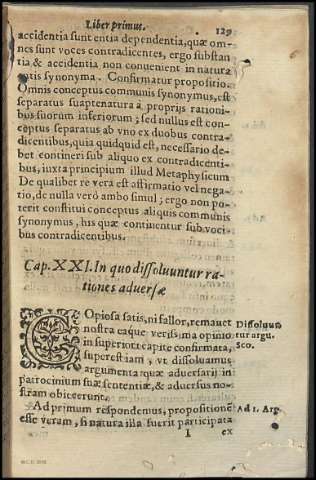 Liber primus. 129
accidentia sunt entia dependentia, quæ om-
nes sunt voces contradicentes, ergo substan
tia & accidentia non conuenient in natura
entis synonyma. Confirmatur propositio.
Omnis conceptus communis synonymus, est
separatus suapte natura à proprijs rationi-
bus suorum inferiorum; sed nullus est con-
ceptus separatus ab vno ex duobus contra-
dicentibus, quia quidquid est, necessario de-
bet contineri sub aliquo ex contradicenti-
bus, iuxta principium illud Metaphysicum
De qualibet re vera est affirmatio vel nega-
tio, de nulla verò ambo simul; ergo non po-
terit constitui conceptus aliquis communis
synonymus, his quæ continentur sub voci-
bus contradicentibus.
Cap. XXI. In quo dissoluuntur ra-
tiones aduersæ
COpiosa satis, ni fallor, remanet
nostra eaque verissima opinio
in superiori capite confirmata,
superest iam, vt dissoluamus
argumenta quæ aduersarij in
patrocinium suæ sententiæ, & aduersus no-
stram obiecerunt.
Dissoluun
tur argu.
Sco.
Ad primum respondemus, propositionẽ
esse veram, si natura illa fuerit participata
Ad 1. Arg.
I ex